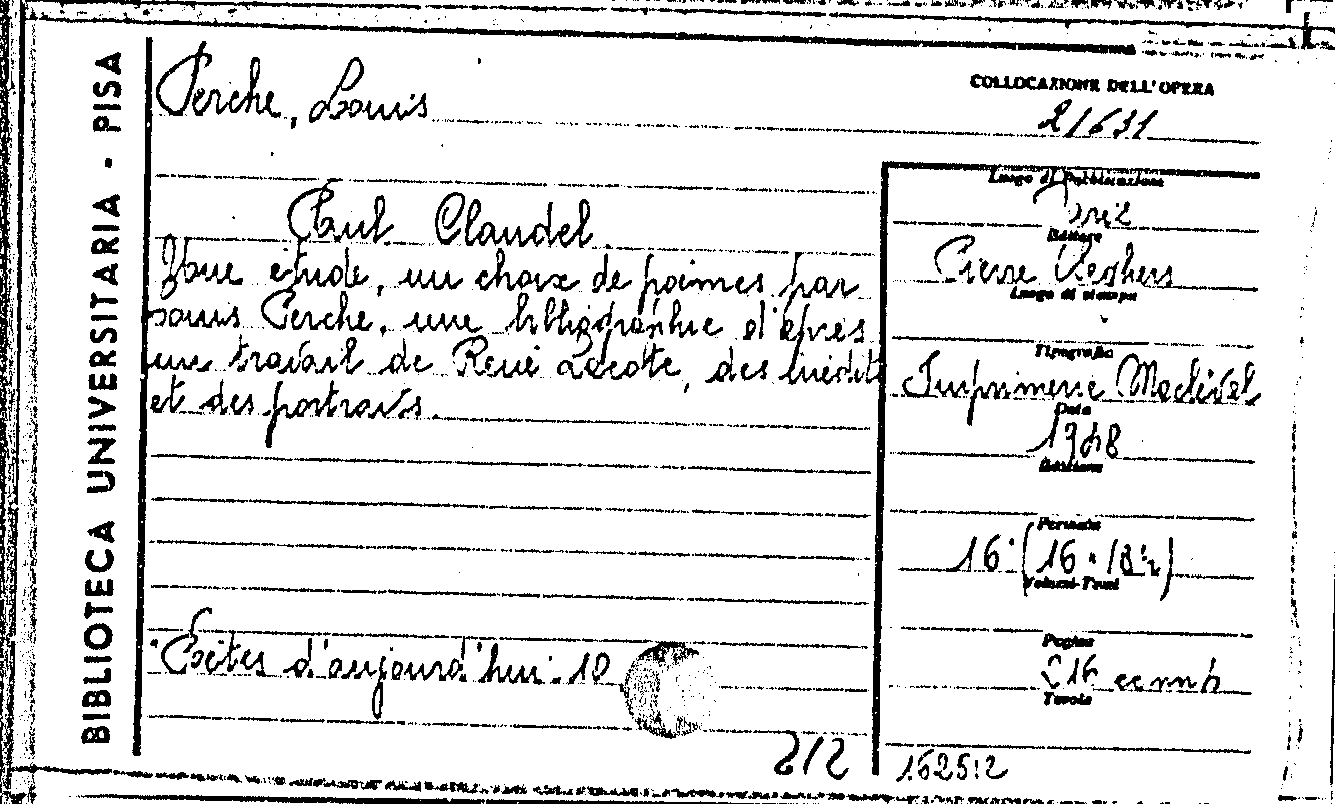 BIBLIOTECA UNIVERSITARIA - PISA
Perche, Louis
COLLOCAZIONE DELL'OPERA
2/631
Paul Claudel
Une étude, un choix de poèmes par
Louis Perche, une bibliographie d'après
un travail de René Lacote, des inédits
et des portraits.
"Poètes d'aujourd'hui. 10
2/2
Luogo di Pubblicazione
Editore
Pierre Seghers
Luogo di stampa
Tipografia
Imprimerie
Data
1948
Edizione
Formato
16° (16 ·
Volumi-Tomi
Pagine
216
Tavole
162512